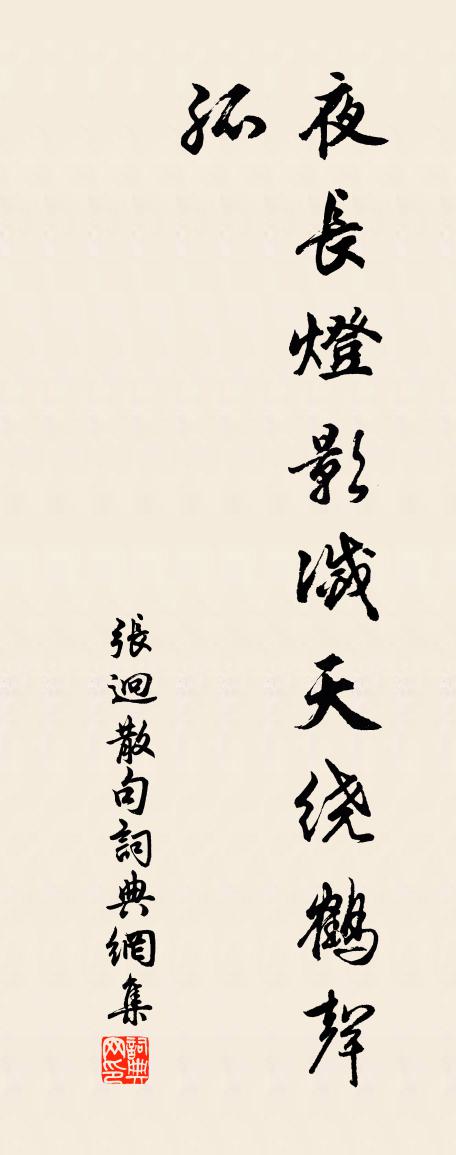 夜長燈影滅天绕鶴聲
孤
張迥散句詞典網集
詞典网印